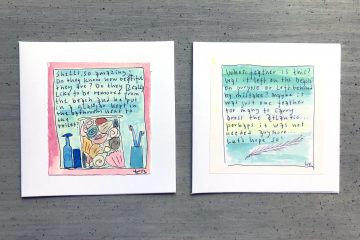 Shells, so amazing.
Do they know how beautiful
they are? Do they Really
like to be removed from
the beach and be put
in a glass jar kept in
the bathroom next to
the
toilet?
Whose feather is this?
Was it left on the beach
on purpose or left behind
by mistake? Maybe it
was just one feather
too many to carry
across the Atlantic...
perhaps it was not
needed anymore.
Let's hope so.